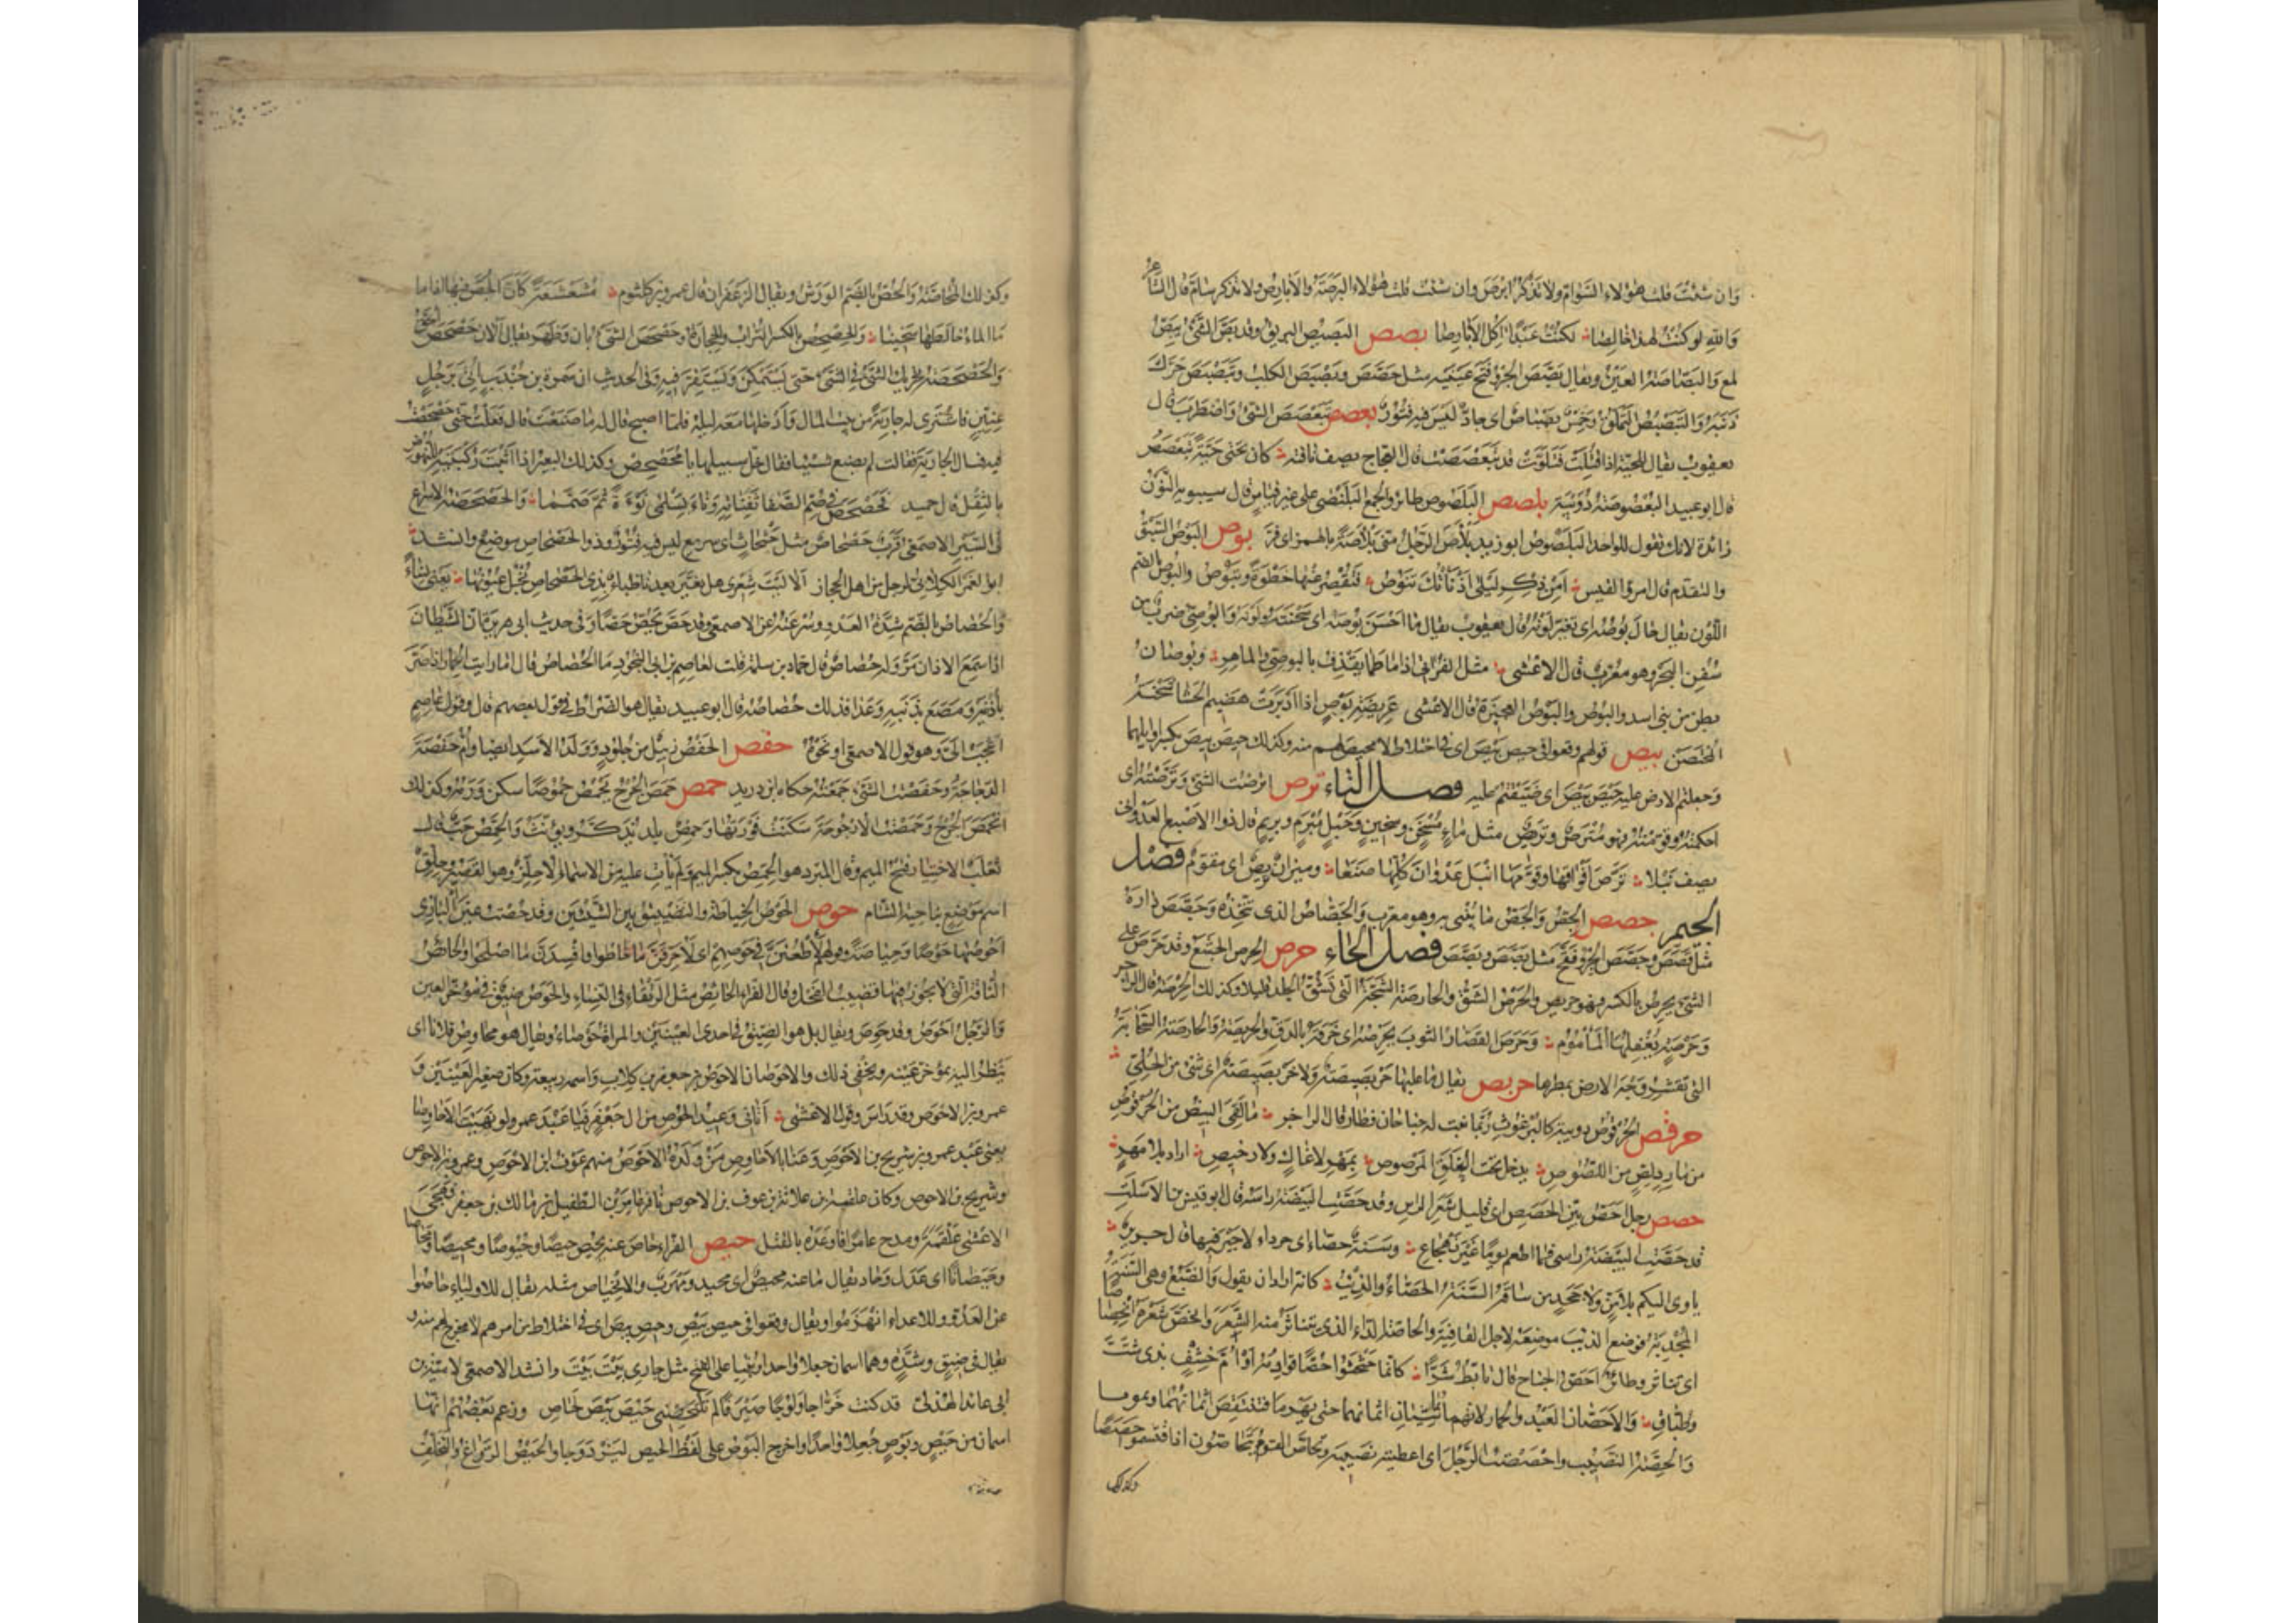 وان شئت قلت هؤلاء السوام ولا تذكر ابرص وان شئت قلت هؤلاء البرصة والابارص ولا تذكر سام قال الشاعر
والله لو كنت لهذا خالصا لكنت عبدا آكل الابارصا بصص البصيص البريق وقد بص الشئ يبص
لمع والبصاصة العين ويقال بصص الجرو فتح عينيه مثل جصص وبصبص الكلب وتبصبص حرك
ذنبه والتبصبص التملق وخمس بصباص اى جاد ليس فيه فتور بعصص تبعصص الشئ واضطرب قال
يعقوب يقال للحية اذا قتلت فتلوت قد تبعصصت قال العجاج يصف ناقته كان تحتى حية تبعصص
قال ابو عبيد البعصوصة دويبة بلصص البلصوص طائر والجمع البلنصى على غير قياس قال سيبويه النون
زائدة لانك تقول للواحد البلصوص ابو زيد بلأص الرجل منى بلأصة بالهمز اى فر بوص البوص السبق
والتقدم قال امرؤ القيس امن ذكر ليلى اذ نأتك تنوص فتقصر عنها خطوة وتبوص والبوص بالضم
اللون يقال حال بوصه اى تغير لونه قال يعقوب يقال ما احسن بوصه اى سحنته ولونه والبوصى ضرب من
سفن البحر وهو معرب قال الاعشى مثل الفراتى اذا ما طما يقذف بالبوصى والماهر وبوصان
بطن من بنى اسد والبوص والبوص العجيزة قال الاعشى عريضة بوص اذا ادبرت هضيم الحشا شختة
المحتضن بيص قولهم وقعوا فى حيص بيص اى فى اختلاط لا محيص لهم منه وكذلك حيص بيص بكسر اوايلهما
وجعلتم الارض عليه حيص بيص اى ضيقتم عليه فصل التاء ترص اترصت الشئ وترصته اى
احكمته وقومته فهو مترص وتريص مثل ماء مسخن وسخين وحبل مبرم وبريم قال ذو الاصبع العدوانى
يصف نبلا ترص افواقها وقومها انبل عدوان كلها صنعا وميزان تريص اى مقوم فصل
الجيم جصص الجص والجص ما يبنى به وهو معرب والجصاص الذى يتخذه وجصص داره
مثل قصص وجصص الجرو فتح مثل بصص ويصص فصل الحاء حرص الحرص الجشع وقد حرص على
الشئ يحرص بالكسر فهو حريص والحرص الشق والحارصة الشجة التى تشق الجلد قليلا وكذلك الحرصة قال الراجز
وحرصة يغفلها المأموم وحرص القصار الثوب يحرصه اى خرقه بالدق والحريصة والحارصة السحابة
التى تقشر وجه الارض بمطرها حربص يقال ما عليها حربصيصة ولا خربصيصة اى شئ من الحلى
حرقص الحرقوص دويبة كالبرغوث ربما نبت له جناحان فطار قال الراجز ما لقى البيض من الحرقوص
من مارد لص من اللصوص يدخل تحت الغلق المرصوص بمهر لا غال ولا رخيص اراد بلا مهر
حصص رجل احص بين الحصص اى قليل شعر الرأس وقد حصت البيضة راسه قال ابو قيس بن الاسلت
قد حصت البيضة راسى فما اطعم يوما غير تهجاع وسنة حصاء اى جرداء لا خير فيها قال جرير
ياوى اليكم بلا من ولا جحد من ساقه السنة الحصاء والذيب كانه اراد ان يقول والضبع وهى السنة
المجدبة فوضع الذيب موضعه لاجل القافية والحاصة الداء الذى يتناثر منه الشعر وانحص شعره انحصاصا
اى تناثر وطائر احص الجناح قال تابط شرا كانما حثحثوا حصا قوادمه او ام خشف بذى شث
وطباق والاحصان العبد والحمار لانهما يماشيان اثمانهما حتى يهرما فتنتقص اثمانهما ويموتا
والحصة النصيب واحصصت الرجل اى اعطيته نصيبه وتحاص القوم يتحاصون اذا اقتسموا حصصا
وكذلك
وكذلك المحاصة والحص بالضم الورس ويقال الزعفران قال عمرو بن كلثوم مشعشعة كان الحص فيها اذا ما
ما الماء خالطها سخينا والحصحص بالكسر التراب والحجارة وحصحص الشئ بان وظهر يقال الآن حصحص الحق
والحصحصة تحريك الشئ فى الشئ حتى يستمكن ويستقر فيه وفى الحديث ان سمرة بن جندب اتى برجل
عنين فاشترى له جارية من بيت المال وادخلها معه ليلة فلما اصبح قال له ما صنعت قال فعلت حتى حصحصت
فيه فسال الجارية فقالت لم يصنع شيئا فقال خل سبيلها يا محصحص وكذلك البعير اذا اثبت ركبتيه للنهوض
بالثقل قال حميد فحصحص فى صم الصفا ثفناته وناء بسلمى نوءة ثم صمما والحصحصة الاسراع
فى السير الاصمعى قرب حصحاص مثل حثحاث اى سريع ليس فيه فتور وذو الحصحاص موضع وانشد
ابو الغمر الكلابى لرجل من اهل الحجاز الا ليت شعرى هل تغير بعدنا ظباء بذى الحصحاص نجل عيونها يعنى نساء
والحصاص بالضم شدة العدو وسرعته عن الاصمعى وقد حص يحص حصا وفى حديث ابى هريرة ان الشيطان
اذا سمع الاذان مر وله حصاص قال حماد بن سلمة قلت لعاصم بن ابى النجود ما الحصاص قال اما رايت الحمار اذا صر
باذنيه ومصع بذنبه وعدا فذلك حصاصه قال ابو عبيد يقال هو الضراط فى قول بعضهم قال وقول عاصم
اعجب الى وهو قول الاصمعى او نحوه حفص الحفص زبيل من جلود وولد الاسد ايضا وام حفصة
الدجاجة وحفصت الشئ جمعته حكاه ابن دريد حمص حمص الجرح يحمص حموصا سكن ورمه وكذلك
انحمص الجرح وحمصت الارجوحة سكنت فورتها وحمص بلد يذكر ويؤنث والحمص حب قال
ثعلب الاختيار فتح الميم وقال المبرد هو الحمص بكسر الميم ولم يأت عليه من الاسماء الا حلز وهو القصير وجلق
اسم موضع بناحية الشام حوص الحوص الخياطة والتضييق بين الشيئين وقد حصت عين البازى
احوصها حوصا وحياصة وقولهم لاطعنن فى حوصهم اى لاخرقن ما خاطوا وافسدن ما اصلحوا والحائص
الناقة التى لا يجوز فيها قضيب الفحل وقال الفراء الحائص مثل الرتقاء فى النساء والحوص ضيق فى مؤخر العين
والرجل احوص وقد حوص ويقال بل هو الضيق فى احدى العينين والمراة حوصاء ويقال هو يحاوص فلانا اى
ينظر اليه بمؤخر عينه ويخفى ذلك والاحوصان الاحوص بن جعفر بن كلاب واسمه ربيعة وكان صغير العينين و
عمرو بن الاحوص وقد راس وقول الاعشى اتانى وعيد الحوص من آل جعفر فيا عبد عمرو لو نهيت الاحاوصا
يعنى عبد عمرو بن شريح بن الاحوص وعنى بالاحاوص من ولده الاحوص منهم عوف بن الاحوص وعمرو بن الاحوص
وشريح بن الاحوص وكان علقمة بن علاثة بن عوف بن الاحوص نافر عامر بن الطفيل بن مالك بن جعفر فهجى
الاعشى علقمة ومدح عامرا فاوعده بالقتل حيص الفراء حاص عنه يحيص حيصا وحيوصا ومحيصا ومحاصا
وحيصانا اى عدل وحاد يقال ما عنه محيص اى محيد ومهرب والانحياص مثله يقال للاولياء حاصوا
عن العدو وللاعداء انهزموا ويقال وقعوا فى حيص بيص وحيص بيص اى فى اختلاط من امرهم لا مخرج لهم منه و
يقال فى ضيق وشدة وهما اسمان جعلا واحدا وبنيا على الفتح مثل جارى بيت بيت وانشد الاصمعى لامية بن
ابى عائذ الهذلى قد كنت خراجا ولوجا صيرفا لم تلتحصنى حيص بيص لحاص وزعم بعضهم انهما
اسمان من حيص وبوص جعلا واحدا واخرج البوص على لفظ الحيص ليزدوجا والحيص الرواغ والتخلف